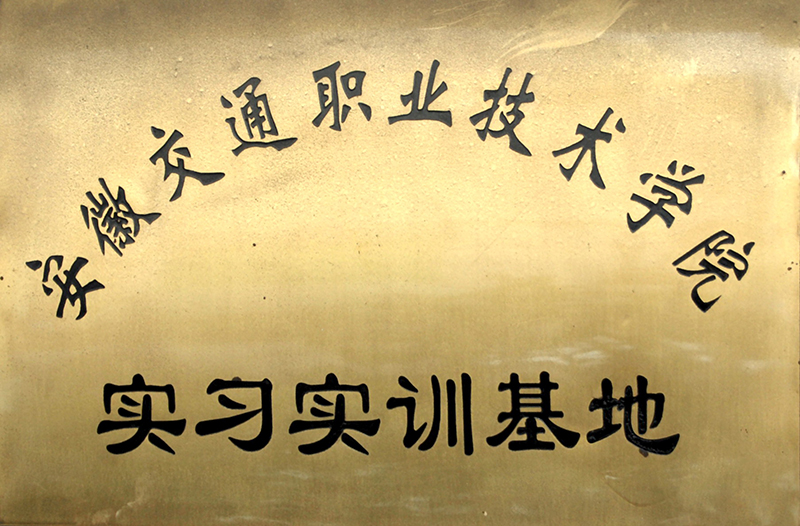 安徽交通职业技术学院
实习实训基地